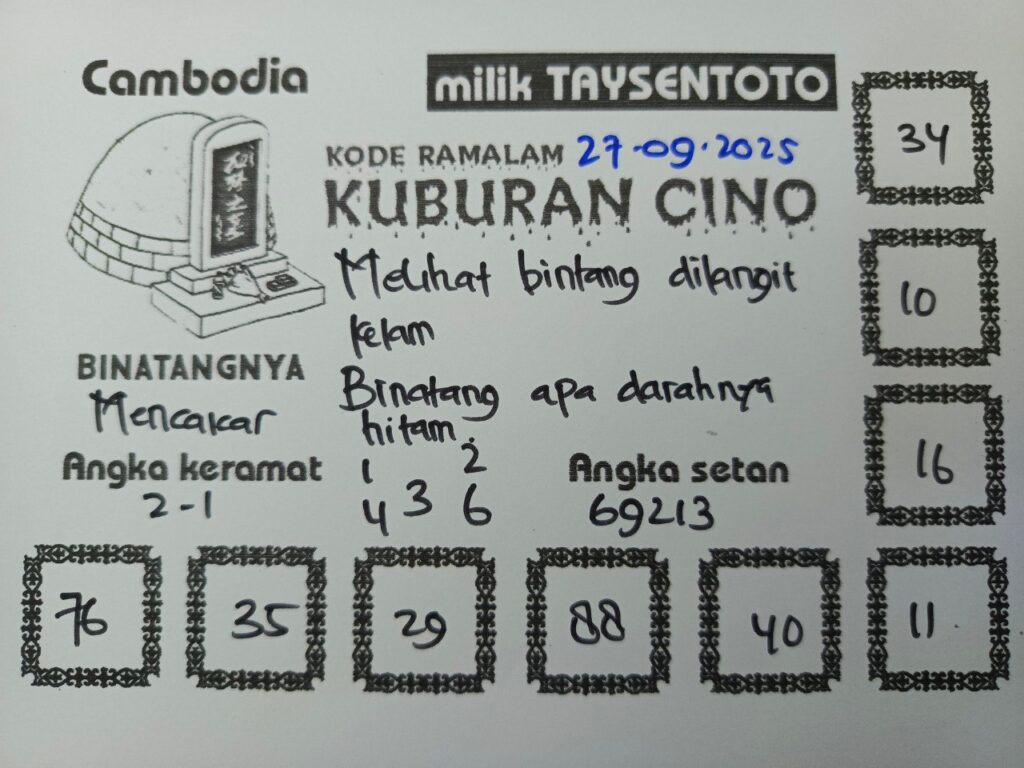 Cambodia
milik TAYSENTOTO
KODE RAMALAM 27-09-2025
KUBURAN CINO
Melihat bintang dilangit
kelam
BINATANGNYA
Mencakar
Binatang apa darahnya
hitam.
Angka keramat
2-1
1 2
3
4 6
Angka setan
69213
34
10
16
76 35 29 88 40 11